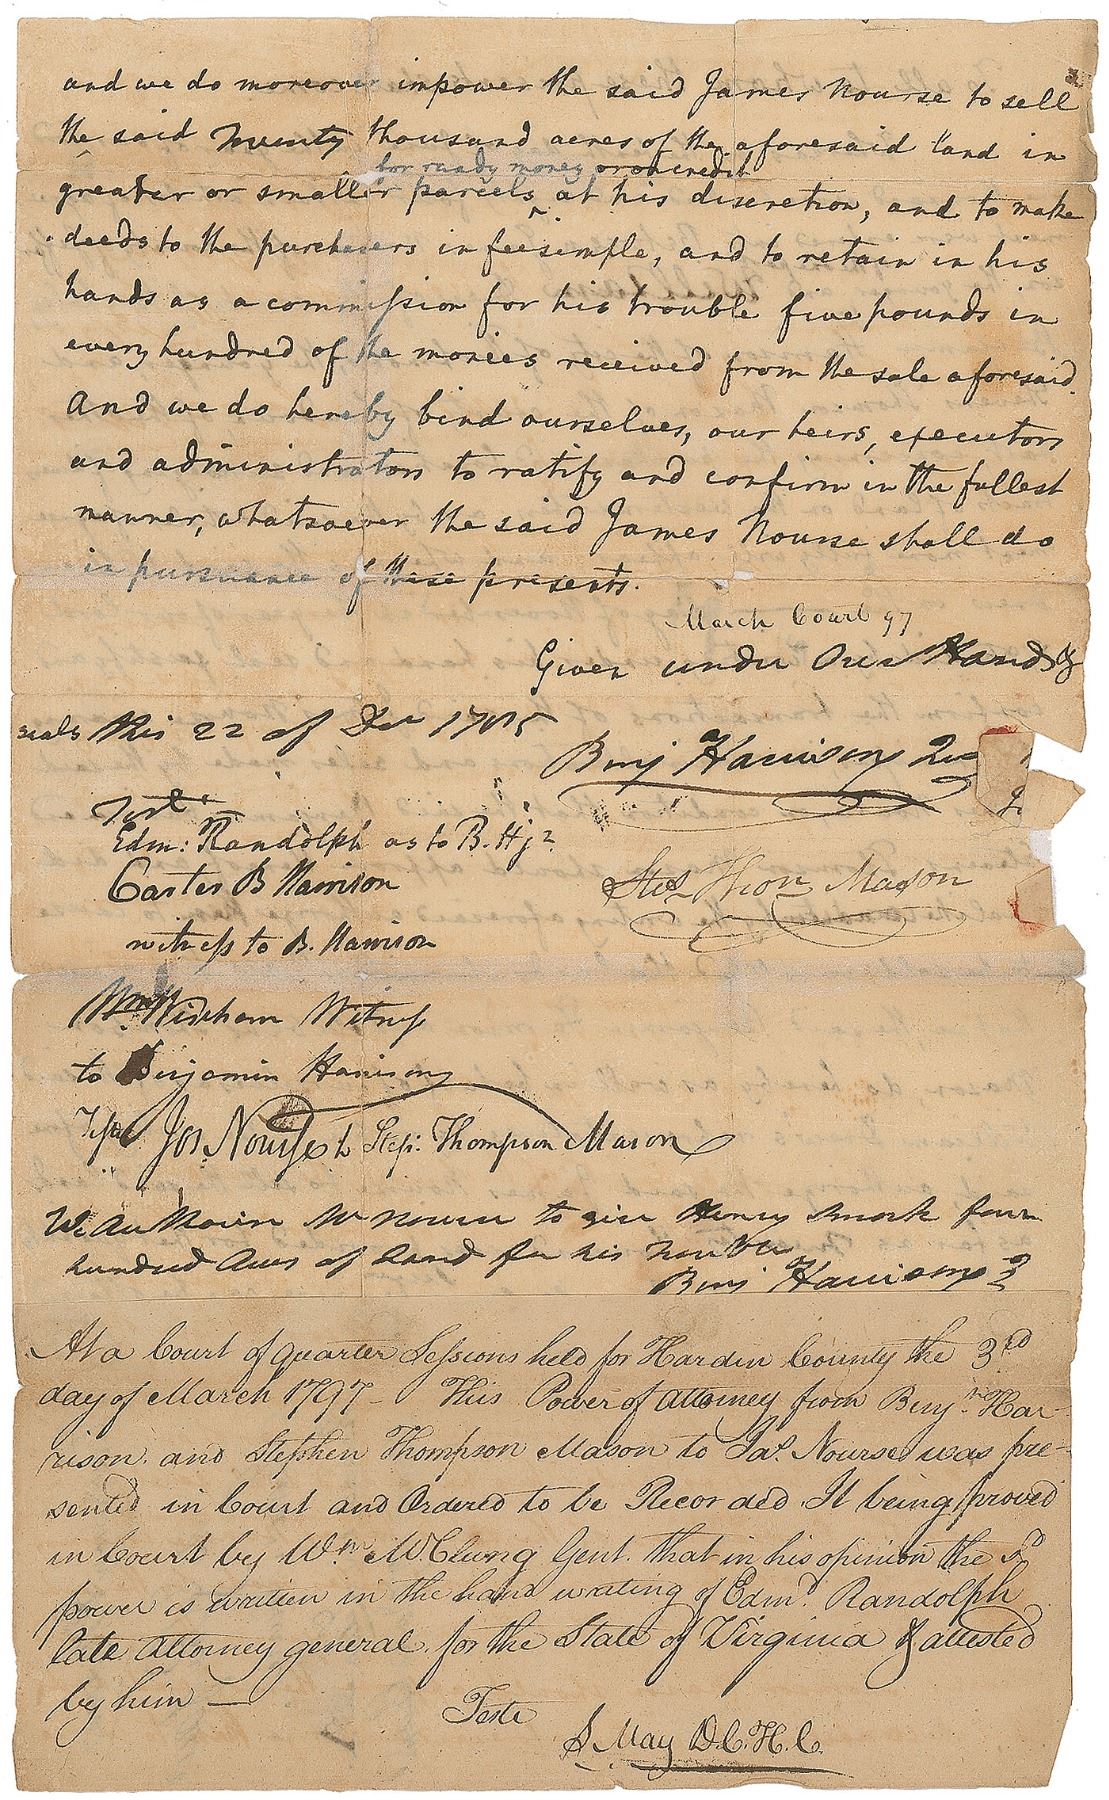 and we do moreover impower the said James Nourse to sell
the said Twenty thousand acres of the aforesaid land in
for ready money or on credit
greater or smaller parcels ‸ at his discretion, and to make
deeds to the purchasers in feesimple, and to retain in his
hands as a commission for his trouble five pounds in
every hundred of the monies received from the sale aforesaid.
And we do hereby bind ourselves, our heirs, executors
and administrators to ratify and confirm in the fullest
manner, whatsoever the said James Nourse shall do
in pursuance of these presents.
March Court 97
Given under Our Hands &
seals this 22 of Dec 1785
Benj Harrison
Test
Edm: Randolph as to B. Hjr.
Carter B Harrison
witness to B. Harrison
Wm Witness
to Benjamin Harrison
Teste Jos Nourse to Step: Thompson Mason
Stes Thon Mason
We authorise Mr Nourse to give Henry Smock four
hundred Acres of Land for his trouble
Benj Harrison
At a Court of Quarter Sessions held for Hardin County the 3rd
day of March 1797 – This Power of attorney from Benjn. Har-
rison and Stephen Thompson Mason to Jas. Nourse was pre-
sented in Court and Ordered to be Recorded. It being proved
in Court by Wm. McClung Gent. that in his opinion the sd
power is written in the hand writing of Edmd. Randolph
late attorney general for the State of Virginia & attested
by him —
Teste
S May D.C.H.C.